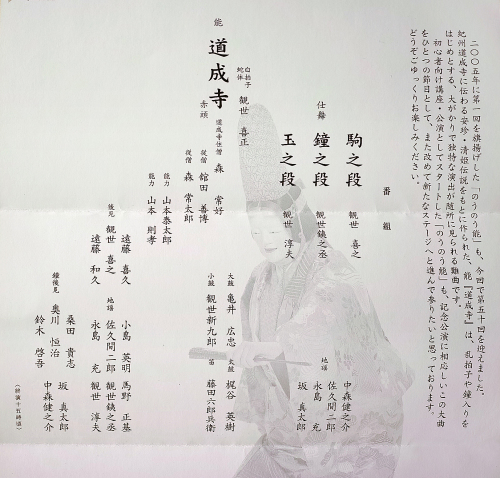 二〇〇五年に第一回を旗揚げした「のうのう能」も、今回で第五十回を迎えました。
紀州道成寺に伝わる安珍・清姫伝説をもとに作られた、能『道成寺』は、乱拍子や鐘入りを
はじめとする、大がかりで独特な演出が随所に見られる難曲です。
初心者向け講座・公演としてスタートした「のうのう能」も、記念公演に相応しいこの大曲
をひとつの節目として、また改めて新たなステージへと進んで参りたいと思っております。
どうぞごゆっくりお楽しみください。
番組
仕舞
駒之段 観世 喜之
鐘之段 観世銕之丞
玉之段 観世 淳夫
地謡
中森健之介
佐久間二郎
永島 充
坂 真太郎
能 道成寺
赤頭
白拍子
蛇体
観世 喜正
道成寺住僧 森 常好
従僧 舘田 善博
従僧 森 常太郎
能力 山本泰太郎
能力 山本 則孝
大鼓 亀井 広忠
小鼓 観世新九郎
太鼓 梶谷 英樹
笛 藤田六郎兵衛
後見 観世 喜之
遠藤 喜久
遠藤 和久
地謡
小島 英明
佐久間二郎
永島 充
馬野 正基
観世銕之丞
観世 淳夫
鐘後見
奥川 恒治
鈴木 啓吾
桑田 貴志
坂 真太郎
中森健之介
(終演十五時頃)